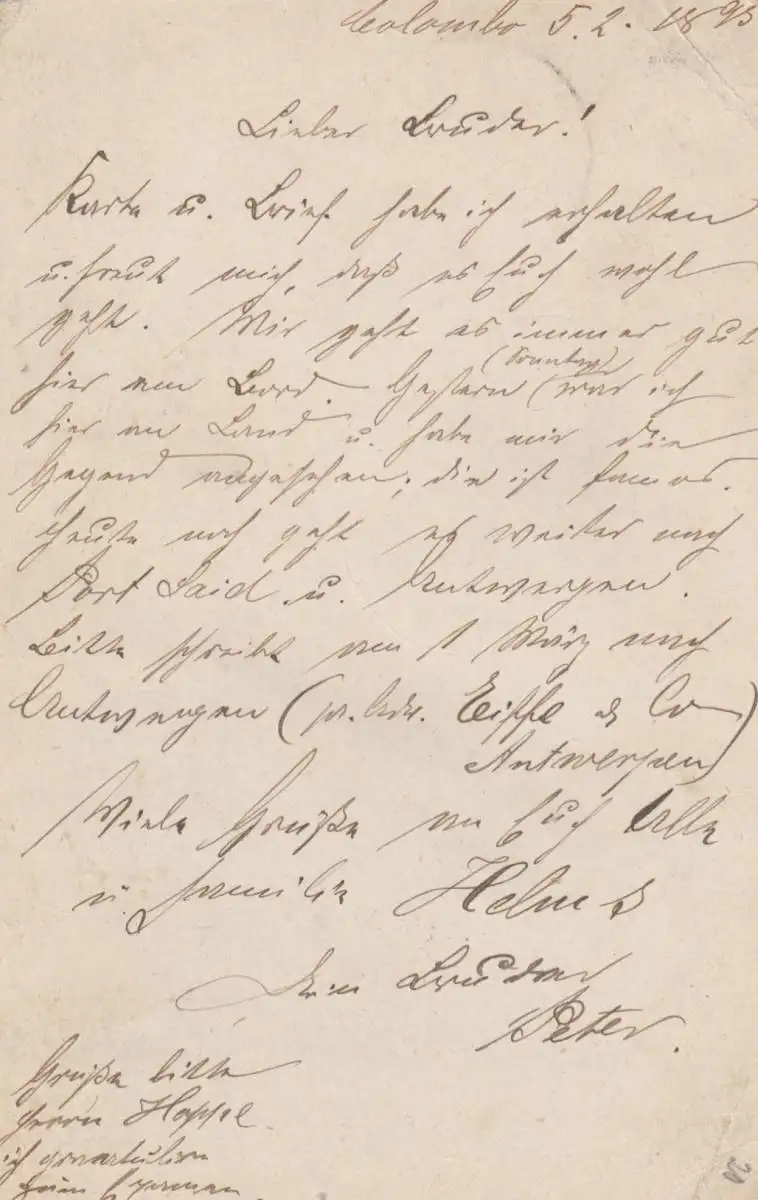 Colombo 5.2.1893
Lieber Bruder!
Karte u. Brief habe ich erhalten
u. freut mich, daß es Euch wohl
geht. Mir geht es immer gut
(Sonntag)
hier am Bord. Gestern war ich
hier an Land u. habe mir die
Gegend angesehen; die ist famos.
Heute noch geht es weiter nach
Port Said u. Antwerpen.
Bitte schreibt am 1 März nach
Antwerpen (pr. Adr. Eiffe & Co
Antwerpen)
Viele Grüße an Euch Alle
u. Familie Helms
Dein Bruder
Peter.
Grüße bitte
Herrn Hoppe
ich gratuliere
zum